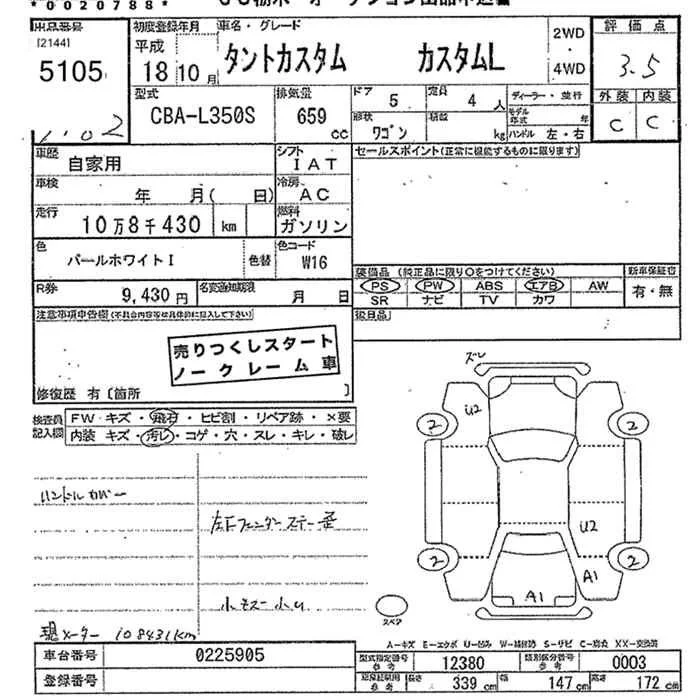 *0020788*
出品番号
[2144]
5105
初度登録年月
平成
18 10 月
車名・グレード
タントカスタム カスタムL
2WD
4WD
評価点
3.5
外装 内装
C C
型式
CBA-L350S
排気量
659
cc
ドア
5
定員
4 人
ディーラー・並行
形状
ワゴン
積載
kg
モデル年式 年
ハンドル 左・右
1102
車歴
自家用
シフト
IAT
セールスポイント(正常に機能するものに限ります)
車検
年 月( 日)
冷房
AC
走行
10万8千430 km
燃料
ガソリン
色
パールホワイトI
色替
色コード
W16
装備品 (純正品に限り○をつけてください)
新車保証書
PS PW ABS エアB AW
有・無
SR ナビ TV カワ
R券
9,430円
名変通知期限
月 日
後日品
注意事項申告欄(不具合内容等は具体的に記入して下さい)
売りつくしスタート
ノークレーム車
修復歴 有〔箇所 〕
検査員
記入欄
FW キズ・飛石・ヒビ割・リペア跡・×要
内装 キズ・汚レ・コゲ・穴・スレ・キレ・破レ
ズレ
U2
2
2
U2
2
2
A1
A1
スペア
ハンドルカバー
左下フェンダーステー歪
小キズ小U
現メーター 108431km
A-キズ E-エクボ U-凹み W-補修跡 S-サビ C-腐食 XX-交換済
車台番号
0225905
型式指定番号
参考
12380
類別区分番号
参考
0003
登録番号
参考
長さ
339 cm
幅
147 cm
高さ
172 cm